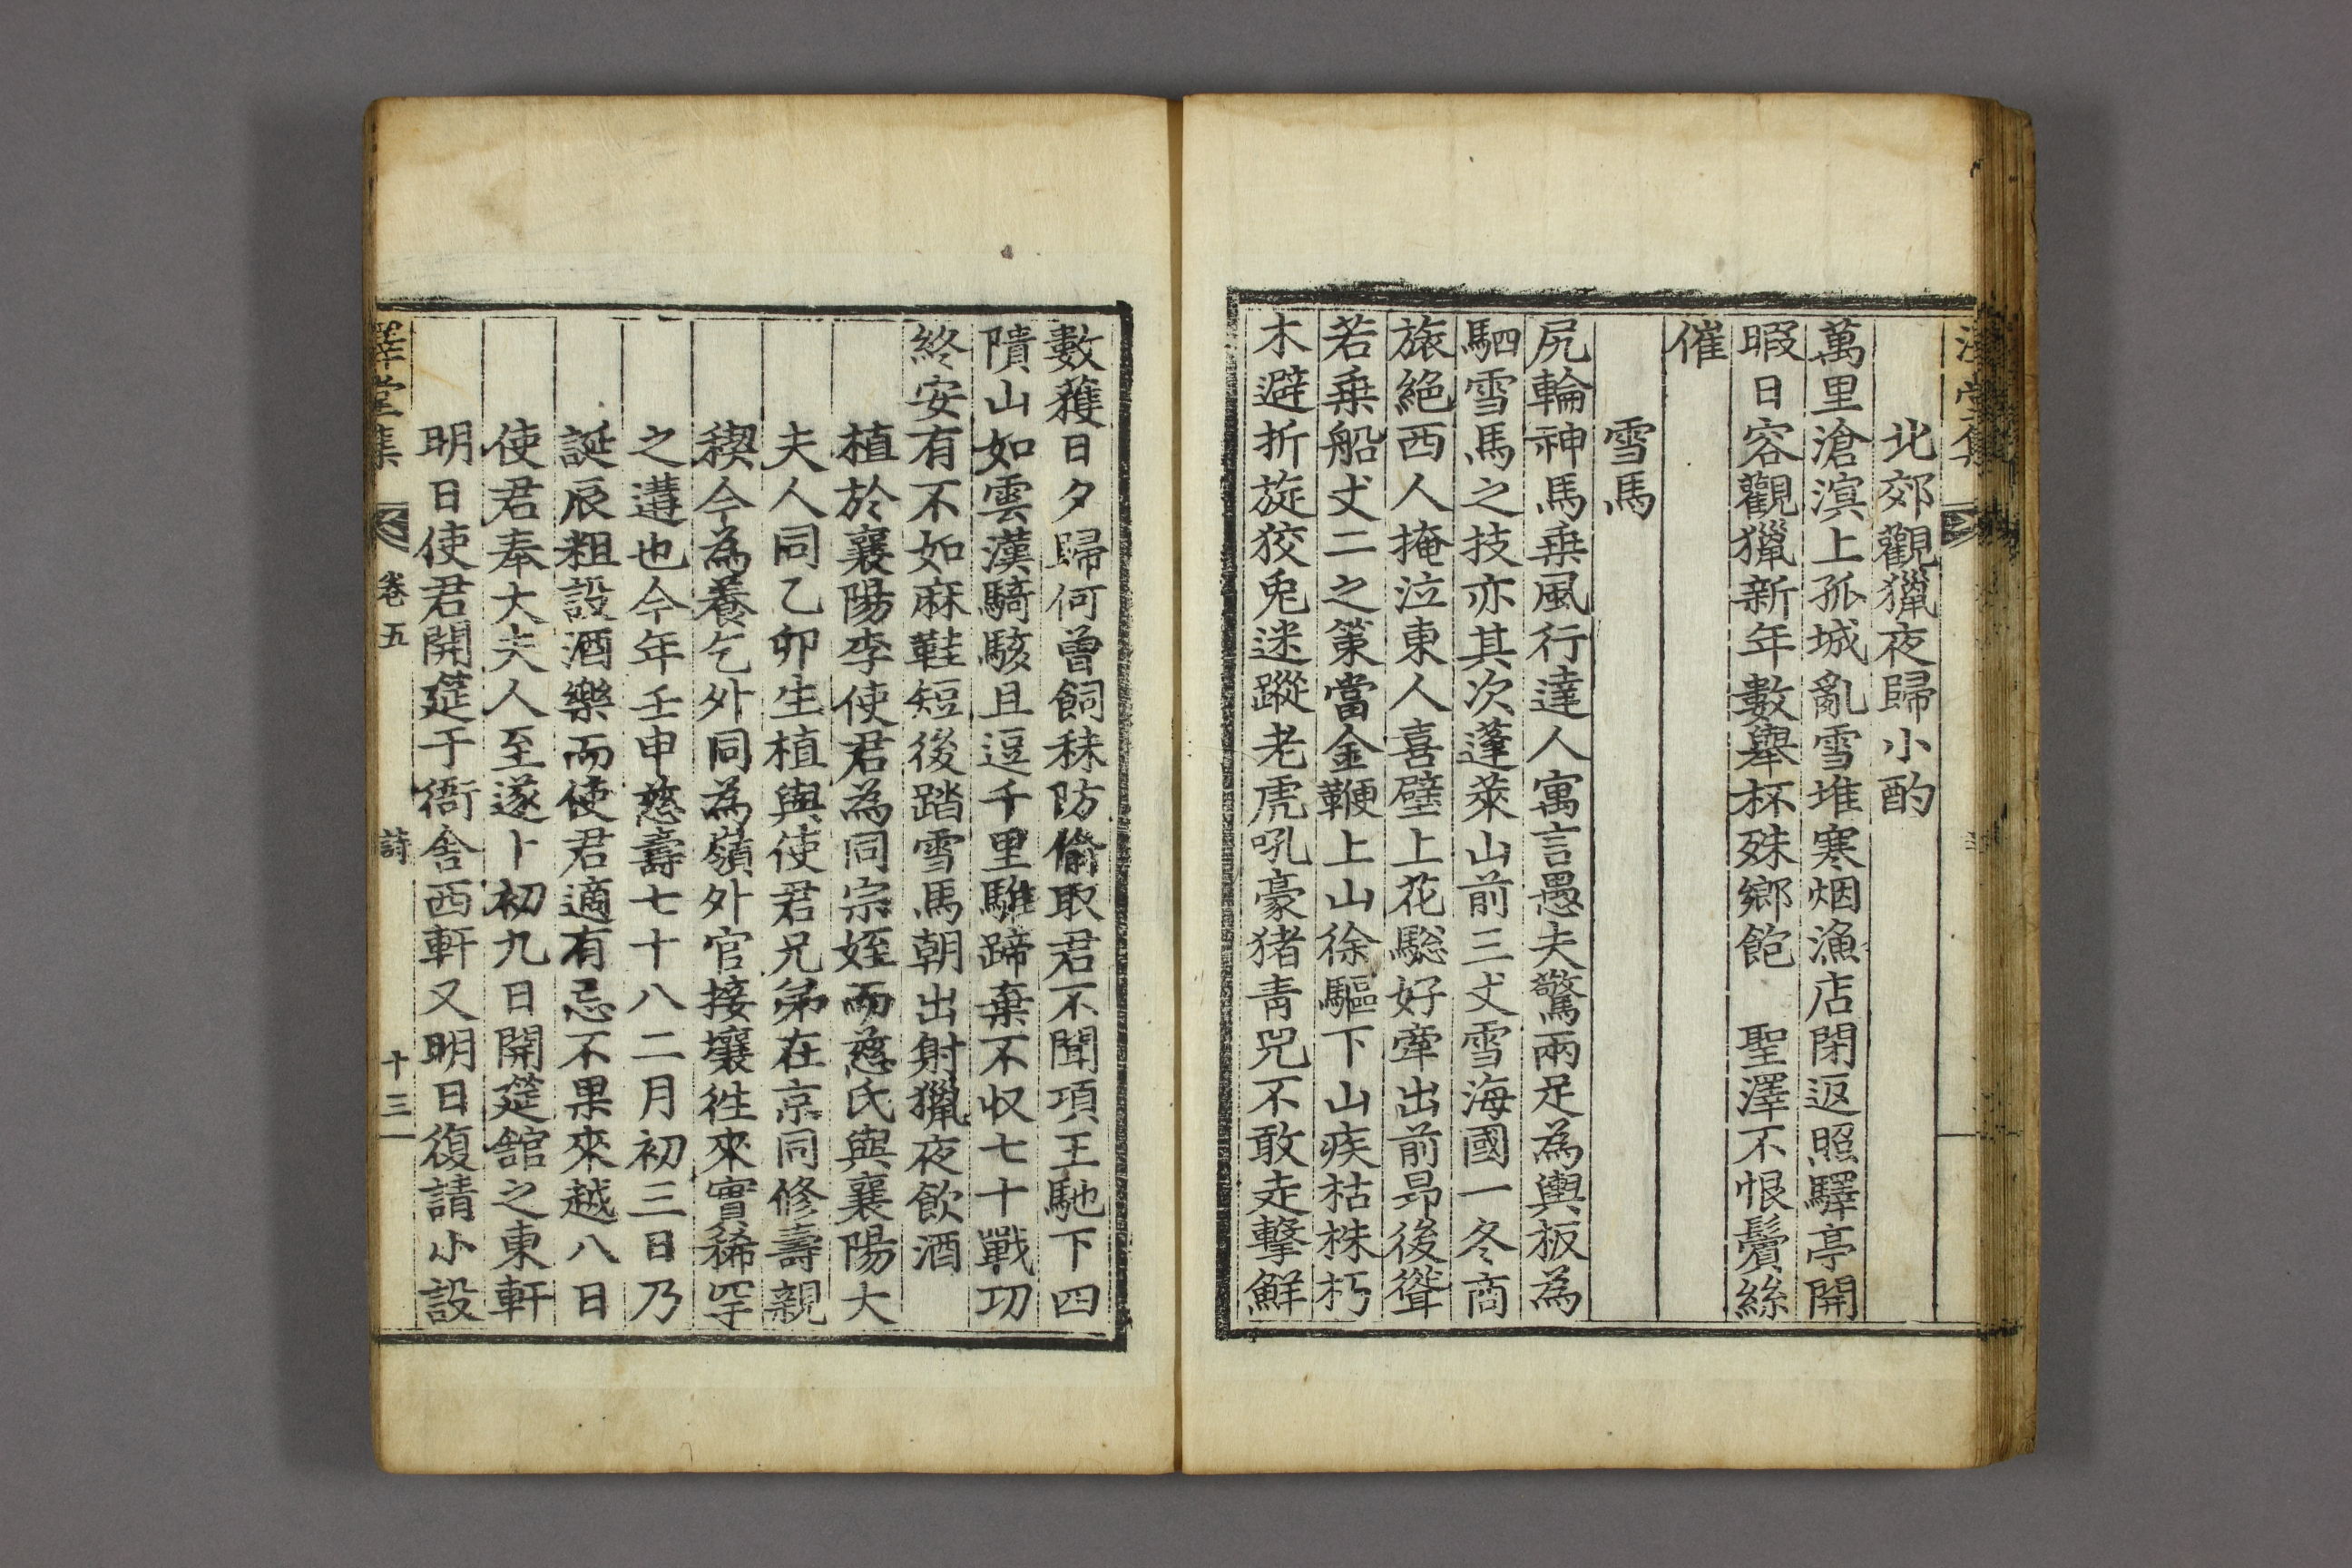 北郊觀獵夜歸小酌
萬里滄溟上孤城亂雪堆寒烟漁店閉返照驛亭開
暇日容觀獵新年數舉杯殊鄉飽 聖澤不恨鬢絲
催
雪馬
尻輪神馬乗風行達人寓言愚夫驚兩足為輿板為
駟雪馬之技亦其次蓬萊山前三丈雪海國一冬商
旅絕西人掩泣東人喜壁上花驄好牽出前昻後聳
若乗船丈二之策當金鞭上山徐驅下山疾枯株朽
木避折旋狡兎迷蹤老虎吼豪猪靑兕不敢走擊鮮
數獲日夕歸何曾飼秣防偷取君不聞項王馳下四
隤山如雲漢騎駭且逗千里騅蹄棄不収七十戰功
終安有不如麻鞋短後踏雪馬朝出射獵夜飲酒
植於襄陽李使君為同宗姪而慈氏與襄陽大
夫人同乙卯生植與使君兄弟在京同修壽親
稧今為養乞外同為嶺外官接壤徃來實稀罕
之遘也今年壬申慈壽七十八二月初三日乃
誕辰粗設酒樂而使君適有忌不果來越八日
使君奉大夫人至遂卜初九日開莚舘之東軒
明日使君開莚于衙舍西軒又明日復請小設
澤堂集 卷五 詩 十三